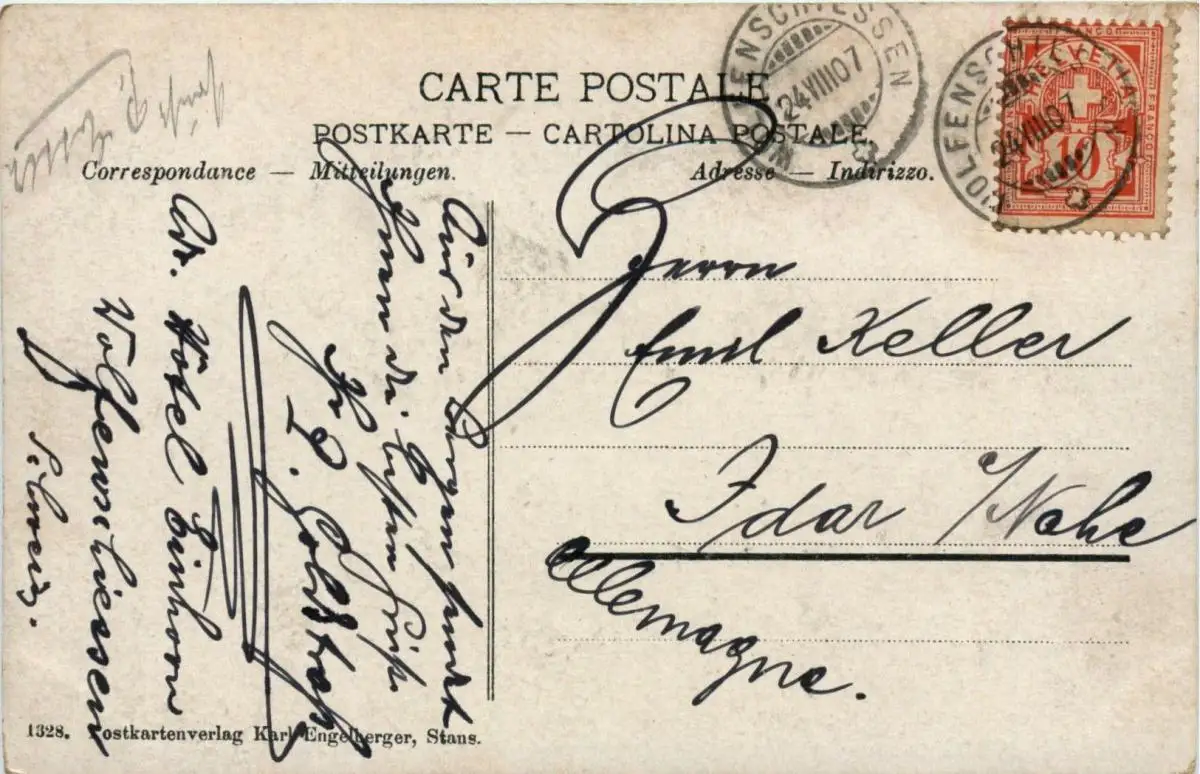 CARTE POSTALE
POSTKARTE — CARTOLINA POSTALE.
Correspondance — Mitteilungen.
Adresse — Indirizzo.
WOLFENSCHIESSEN
24 VIII 07
WOLFENSCHI
24 VIII 07
FRANCO
HELVETIA
10
Herrn
Emil Keller
Idar /Nahe
Allemagne.
Aus den
Ihnen die besten Grüße
Ihr
Adr. Hotel Einhorn
Wolfenschiessen
Schweiz.
1328. Postkartenverlag Karl Engelberger, Stans.